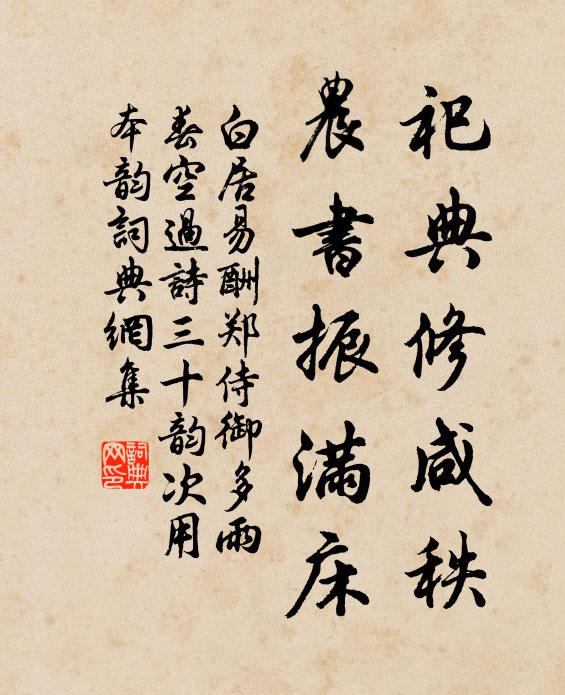 祀典修咸秩
農書振滿床
白居易酬郑侍御多雨
春空過詩三十韵次用
本韵詞典網集
詞典
网印